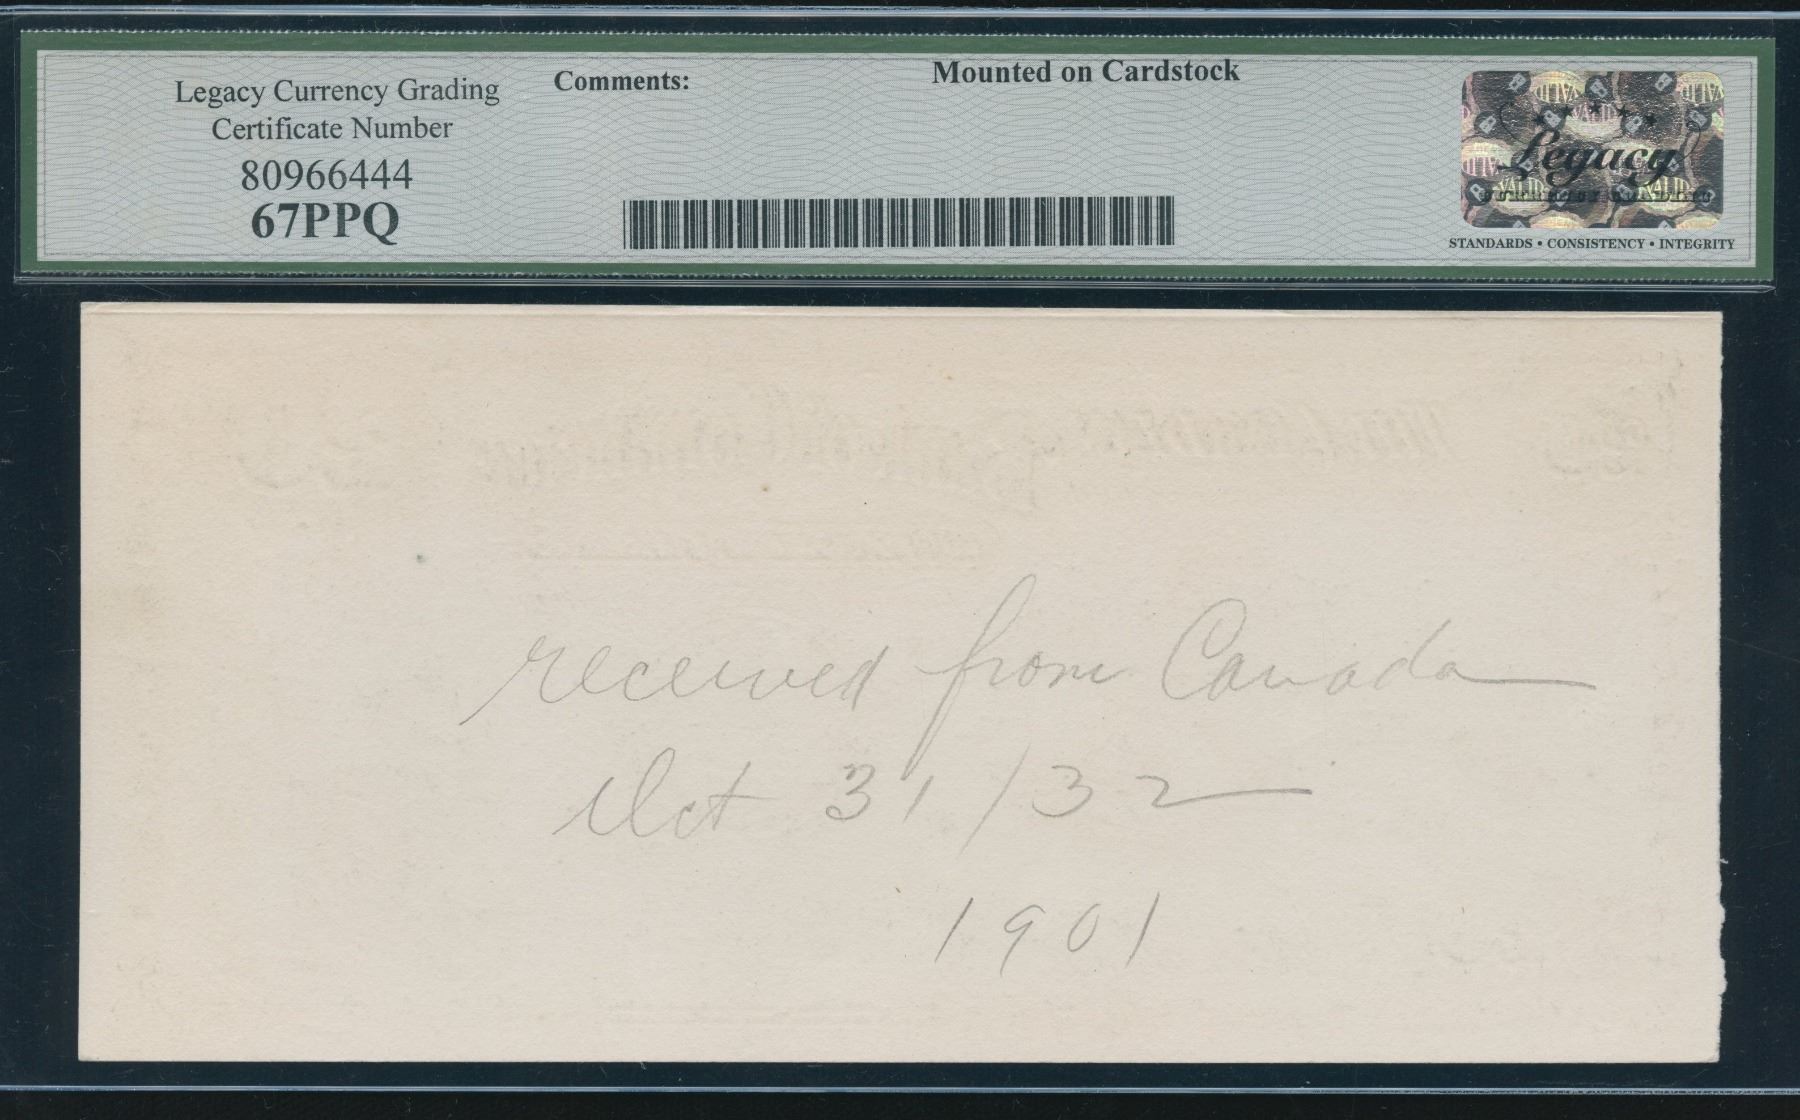 Legacy Currency Grading
Certificate Number
80966444
67PPQ
Comments:
Mounted on Cardstock
Legacy
STANDARDS • CONSISTENCY • INTEGRITY
received from Canada
Oct 31/32
1901